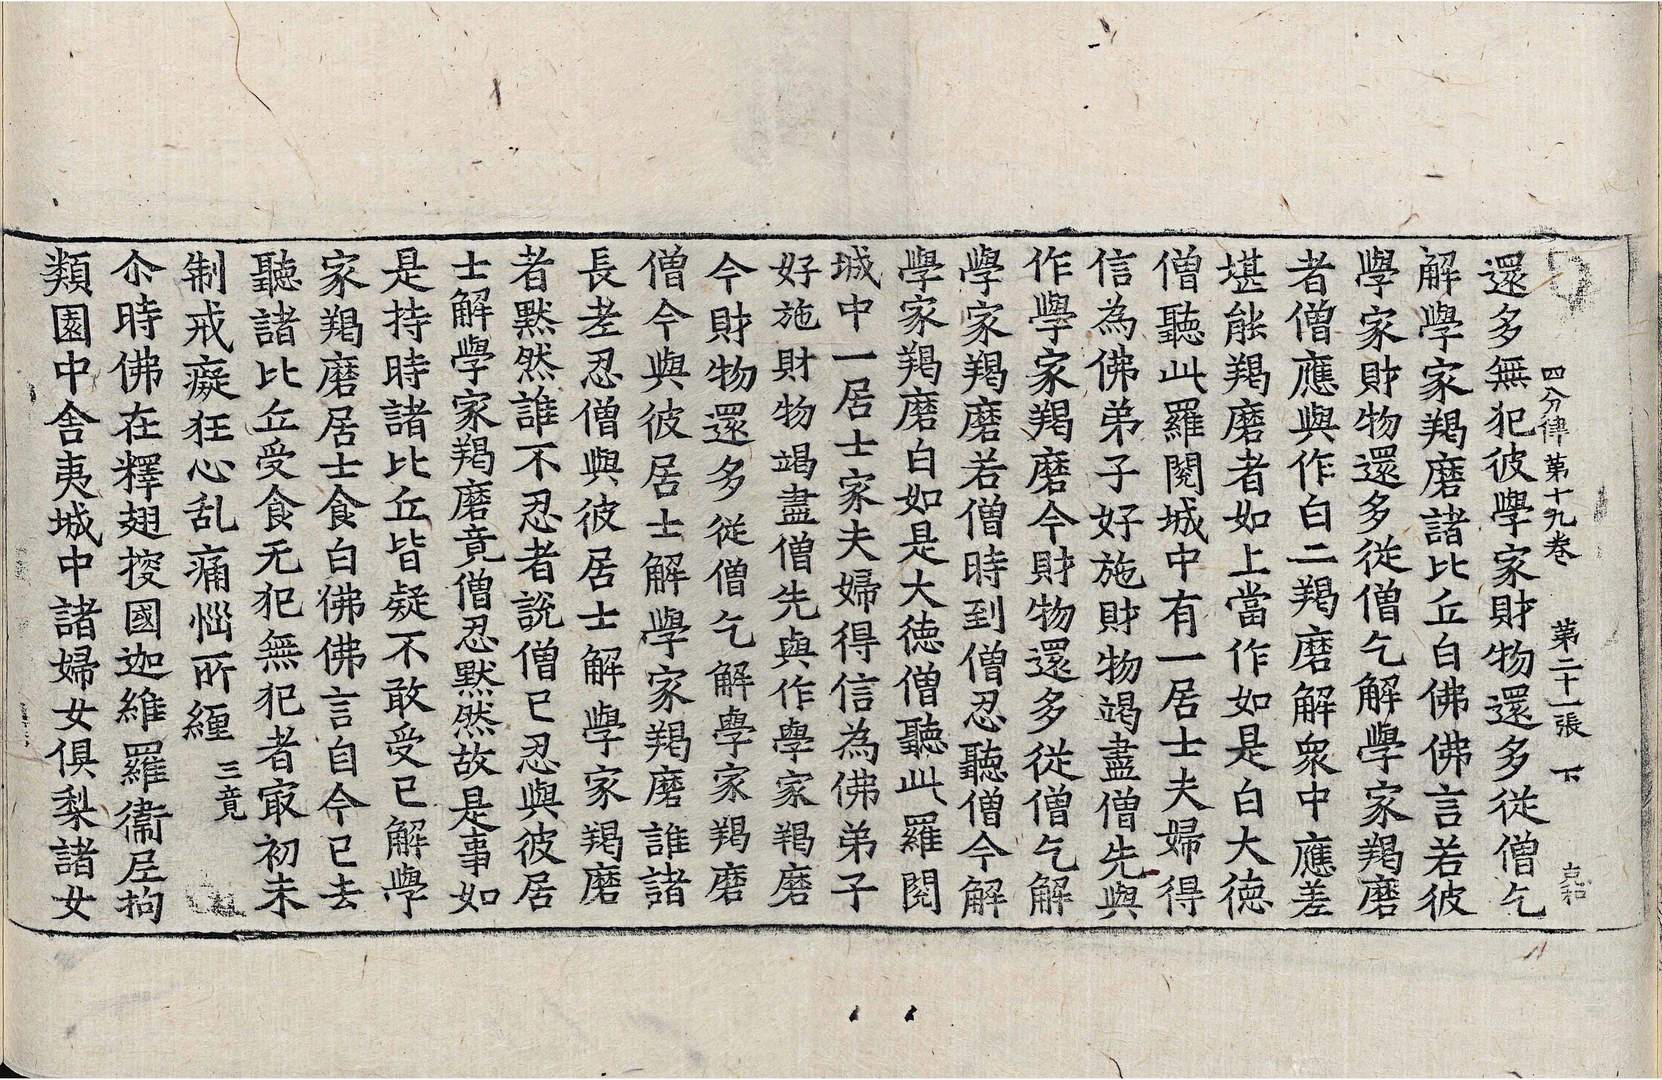 四分律第十九卷 第二十一張 下
還多無犯彼學家財物還多從僧乞
解學家羯磨諸比丘白佛佛言若彼
學家財物還多從僧乞解學家羯磨
者僧應與作白二羯磨解衆中應差
堪能羯磨者如上當作如是白大德
僧聽此羅閱城中有一居士夫婦得
信為佛弟子好施財物竭盡僧先與
作學家羯磨今財物還多從僧乞解
學家羯磨若僧時到僧忍聽僧今解
學家羯磨白如是大德僧聽此羅閱
城中一居士家夫婦得信為佛弟子
好施財物竭盡僧先與作學家羯磨
今財物還多從僧乞解學家羯磨
僧今與彼居士解學家羯磨誰諸
長老忍僧與彼居士解學家羯磨
者默然誰不忍者說僧已忍與彼居
士解學家羯磨竟僧忍默然故是事如
是持時諸比丘皆疑不敢受已解學
家羯磨居士食白佛佛言自今已去
聽諸比丘受食无犯無犯者㝡初未
制戒癡狂心乱痛惱所纏 三竟
尒時佛在釋翅搜國迦維羅衞尼拘
類園中舍夷城中諸婦女俱梨諸女